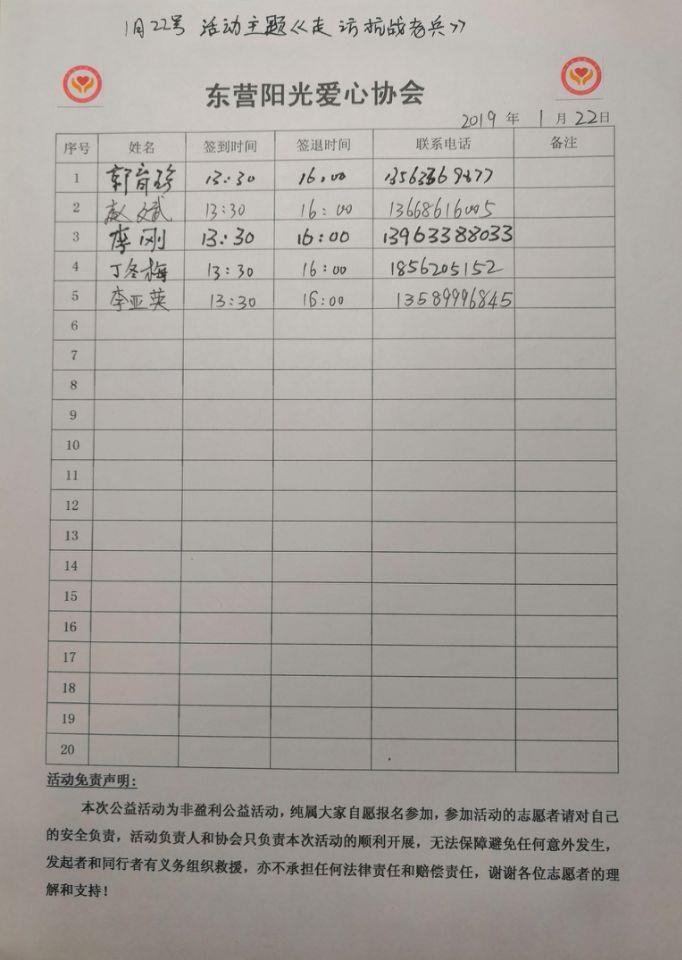 1月22号 活动主题《走访抗战老兵》
东营阳光爱心协会
2019 年 1 月 22 日
序号 姓名 签到时间 签退时间 联系电话 备注
1 郭育珍 13:30 16:00
2 赵文武 13:30 16:00 13668616005
3 李刚 13:30 16:00 13963388033
4 丁冬梅 13:30 16:00 1856205152
5 李亚英 13:30 16:00 13589996845
6
7
8
9
10
11
12
13
14
15
16
17
18
19
20
活动免责声明:
本次公益活动为非盈利公益活动，纯属大家自愿报名参加，参加活动的志愿者请对自己
的安全负责，活动负责人和协会只负责本次活动的顺利开展，无法保障避免任何意外发生，
发起者和同行者有义务组织救援，亦不承担任何法律责任和赔偿责任，谢谢各位志愿者的理
解和支持！